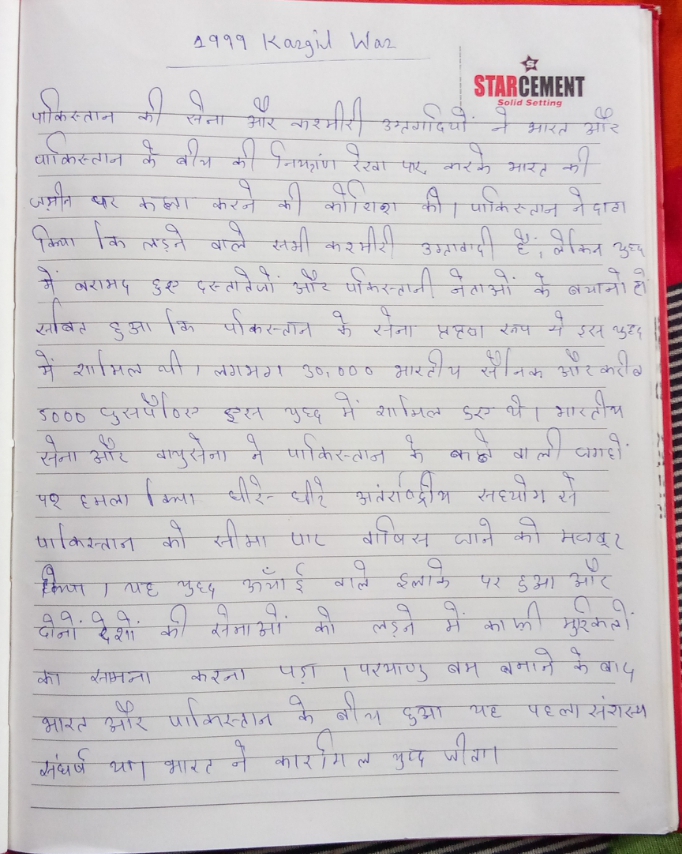 1999 Kargil War
STARCEMENT
Solid Setting
पाकिस्तान की सेना और कश्मीरी उग्रवादियों ने भारत और
पाकिस्तान के बीच की नियंत्रण रेखा पार करके भारत की
ज़मीन पर कब्ज़ा करने की कोशिश की। पाकिस्तान ने दावा
किया कि लड़ने वाले सभी कश्मीरी उग्रवादी हैं, लेकिन युद्ध
में बरामद हुए दस्तावेजों और पाकिस्तानी नेताओं के बयानों से
साबित हुआ कि पाकिस्तान के सेना रूप से इस युद्ध
में शामिल थी। लगभग 30,000 भारतीय सैनिक और करीब
5000 घुसपैठिए इस युद्ध में शामिल हुए थे। भारतीय
सेना और वायुसेना ने पाकिस्तान के कब्जे वाली जगहों
पर हमला किया धीरे-धीरे अंतर्राष्ट्रीय सहयोग से
पाकिस्तान को सीमा पार वापिस जाने को मजबूर
किया। यह युद्ध ऊँचाई वाले इलाके पर हुआ और
दोनों देशों की सेनाओं को लड़ने में काफी मुश्किलों
का सामना करना पड़ा। परमाणु बम बनाने के बाद
भारत और पाकिस्तान के बीच हुआ यह पहला संशस्त्र
संघर्ष था। भारत ने कारगिल युद्ध जीता।